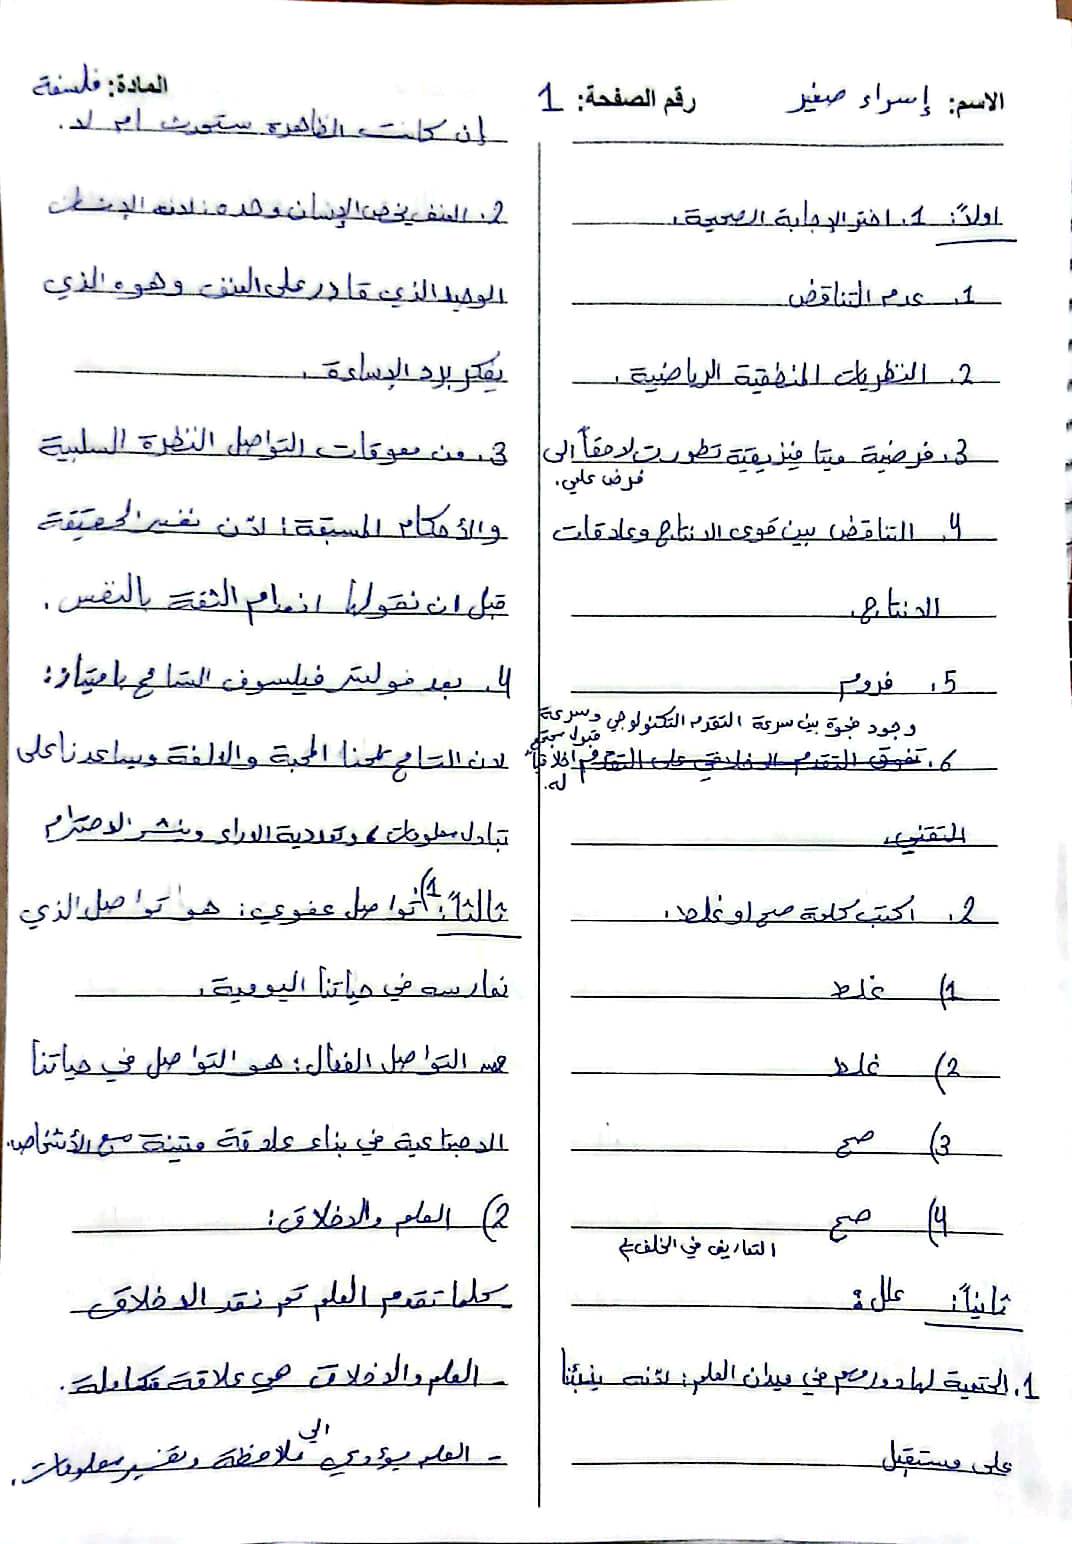 الاسم: إسراء صغير
رقم الصفحة: 1
المادة: فلسفة
اولاً: 1. اختر الإجابة الصحيحة.
1. عدم التناقض
2. النظريات المنطقية الرياضية.
3. فرضية ميتا فيزيقية تطورت لاحقاً الى
فرض علمي.
4. التناقض بين قوى الانتاج وعلاقات
الانتاج.
5. فروم
وجود فجوة بين سرعة التقدم التكنولوجي وسرعة
قبول مجتمع
6. تفوق التقدم الاخلاقي على التقدم اخلاقياً
له.
التقني.
2. اكتب كلمة صح او غلط.
1) غلط
2) غلط
3) صح
4) صح
التعاريف في الخلف
ثانياً: علل:
1. الحتمية لها دور مهم في ميدان العلم: لأنه ينبئنا
على مستقبل
إن كانت الظاهرة ستحدث ام لا.
2. العنف يخص الإنسان وحده: لانه الإنسان
الوحيد الذي قادر على العنف وهوه الذي
يفكر برد الإساءة.
3. من معوقات التواصل النظرة السلبية
والأحكام المسبقة: لأن نفسر الحقيقة
قبل ان نقولها انعدام الثقة بالنفس.
4. يعد فوليتر فيلسوف التسامح بامتياز:
لان التسامح يمنحنا المحبة والالفة ويساعدنا على
تبادل معلومات، وتعددية الاراء وينشر الاحترام
ثالثاً: 1) تواصل عفوي: هو تواصل الذي
نمارسه في حياتنا اليومية.
التواصل الفعال: هو التواصل في حياتنا
الاجتماعية في بناء علاقة متينة مع الأشخاص.
2) العلم والاخلاق:
كلما تقدم العلم تم نقد الاخلاق
- العلم والاخلاق هي علاقة متكاملة.
- العلم يؤدي الى ملاحظة وتفسير معلومات.